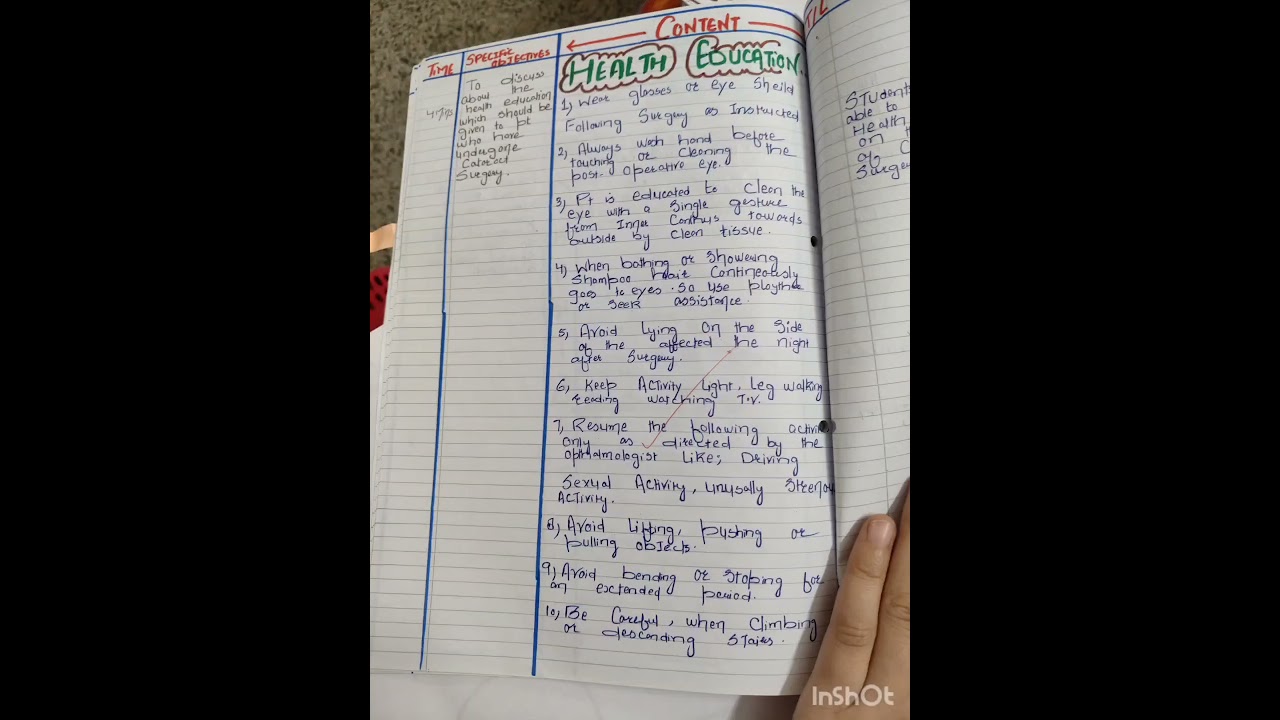 TIME
SPECIFIC OBJECTIVES
CONTENT
To discuss
about the
health education
which should be
given to pt
who have
undergone
Cataract
Surgery.
HEALTH EDUCATION
1) Wear glasses or eye sheild
Following Surgery as Instructed
2, Always wash hand before
touching or cleaning the
post-operative eye.
3) Pt is educated to clean the
eye with a single gesture
from Inner towards
outside by clean tissue.
4) When bathing or showering
Shampoo Contineously
goes to eyes. So use
or seek assistance.
5, Avoid Lying On the side
of the affected the night
after surgery.
6, Keep Activity Light, Leg walking
reading watching T.V.
7, Resume the following
only as directed by the
opthalmologist Like; Driving
Sexual Activity, unusally
Activity.
8) Avoid Lifting, pushing or
pulling objects.
9) Avoid bending or stoping for
an extended period.
10, Be Careful, when climbing
or descending stairs.
TIL
Student
able to
Health
on
of C
Surge
InShOt